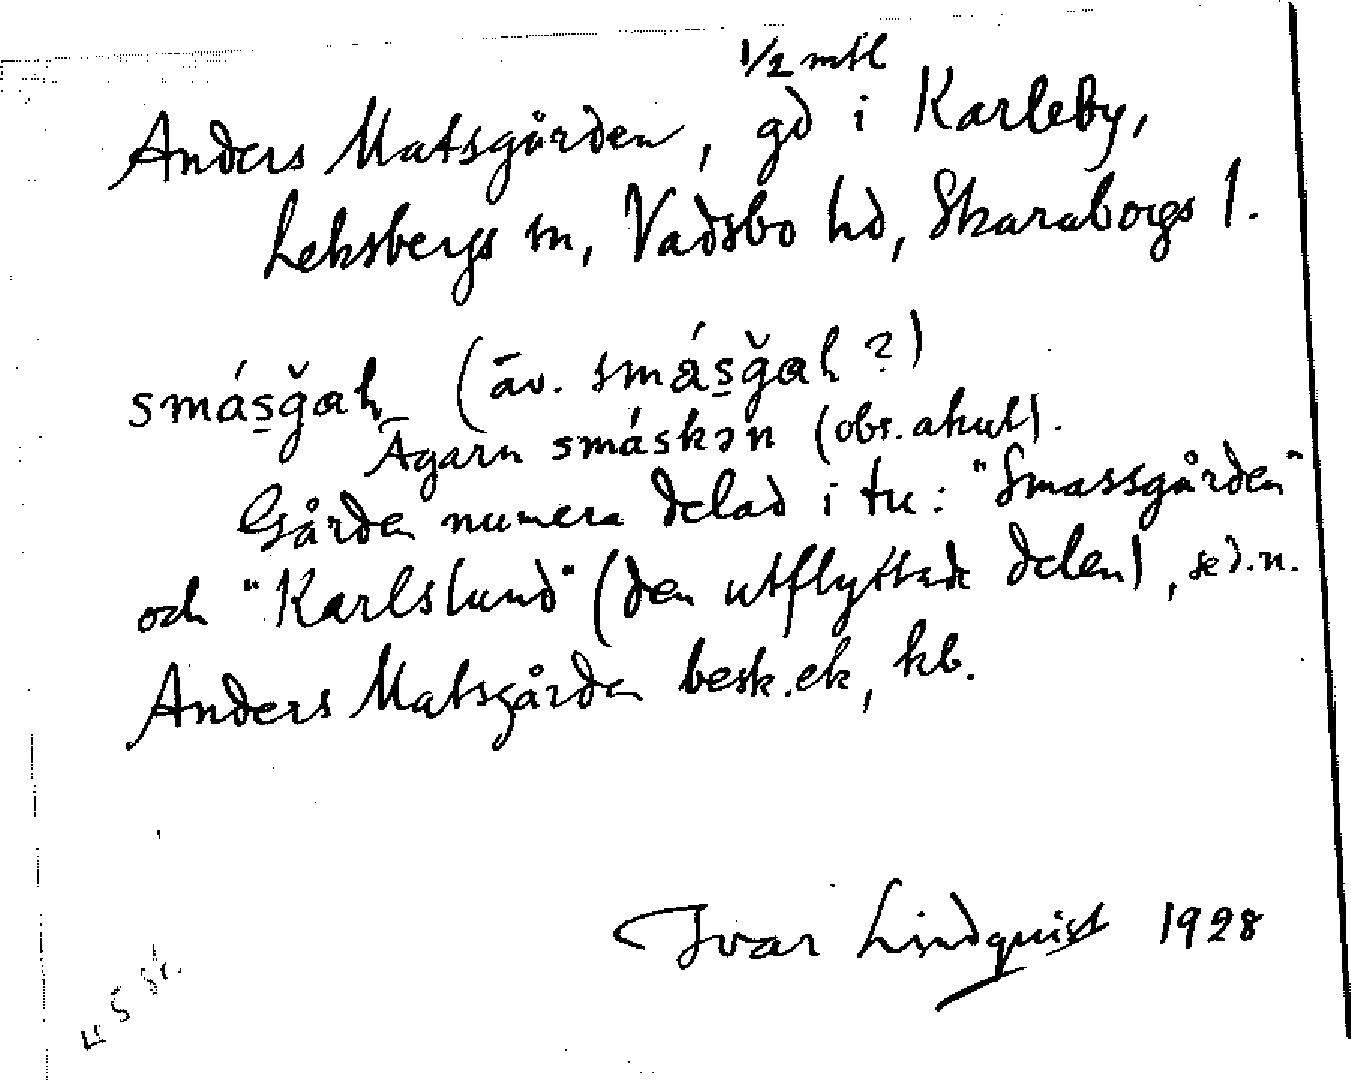 1/2 mtl
Anders Matsgården, gd i Karleby,
Leksbergs sn, Vadsbo hd, Skaraborgs l.
(äv.
Ägarn smáskən (obs. akut).
Gården numera delad i tu: "Smassgården"
och "Karlslund" (den utflyttade delen), se d.n.
Anders Matsgården besk. ek, kb.
Ivar Lindquist 1928